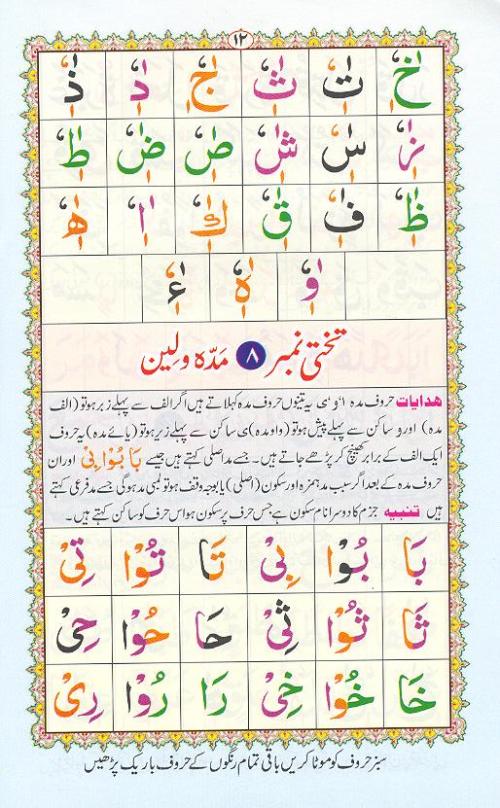 ۱۲
خٰٖٗ تٰٖٗ ثٰٖٗ جٰٖٗ دٰٖٗ ذٰٖٗ
زٰٖٗ سٰٖٗ شٰٖٗ صٰٖٗ ضٰٖٗ طٰٖٗ
ظٰٖٗ فٰٖٗ قٰٖٗ كٰٖٗ اٰٖٗ ھٰٖٗ
وٰٖٗ ہٰٖٗ ءٰٖٗ
تختی نمبر ۸ مَدّہ و لِین
ھدایات حروف مدہ ا ۡو ۡی یہ تینوں حروف مدہ کہلاتے ہیں اگر الف سے پہلے زبر ہو تو (الف
مدہ) اور و ساکن سے پہلے پیش ہو تو (واو مدہ) ی ساکن سے پہلے زیر ہو تو (یائے مدہ) یہ حروف
ایک الف کے برابر کھینچ کر پڑھے جاتے ہیں۔ جسے مد اصلی کہتے ہیں جیسے بَا بُوْا بِیْ اور ان
حروف مدہ کے بعد اگر سبب مد ہمزہ اور سکون (اصلی) یا بوجہ وقف ہو تو لمبی مد ہو گی جسے مد فرعی کہتے
ہیں تنبیہ جزم کا دوسرا نام سکون ہے جس حرف پر سکون ہو اس حرف کو ساکن کہتے ہیں۔
بَا بُوْا بِیْ تَا تُوْا تِیْ
ثَا ثُوْا ثِیْ حَا حُوْا حِیْ
خَا خُوْا خِیْ رَا رُوْا رِیْ
سبز حروف کو موٹا کریں باقی تمام رنگوں کے حروف باریک پڑھیں